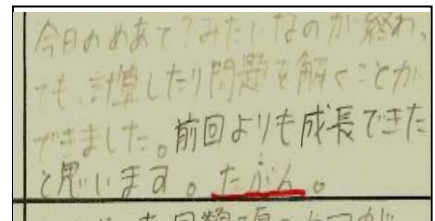 今日のめあて?みたいなのが終わっ
ても、計算したり問題を解くことが
できました。前回よりも成長できた
と思います。たぶん。